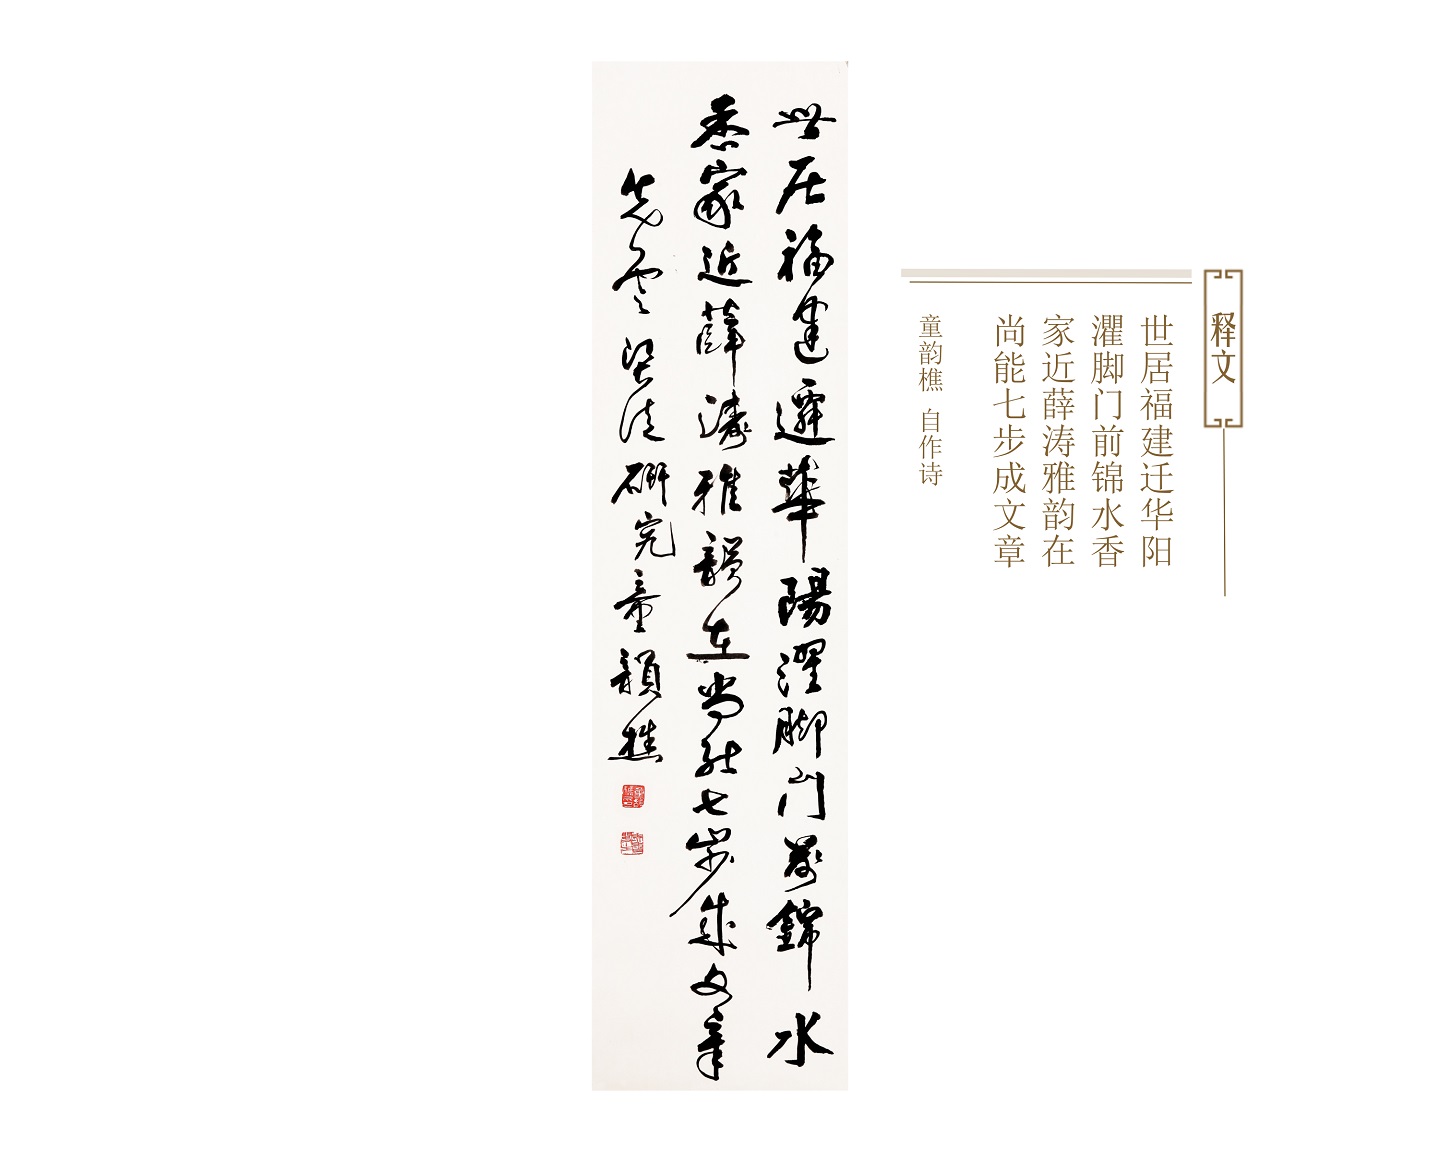 世居福建遷華陽濯脚門前錦水
香家近薛濤雅韻在尚能七步成文章
先雲梁法研究童韻樵
释文
世居福建迁华阳
濯脚门前锦水香
家近薛涛雅韵在
尚能七步成文章
童韵樵 自作诗